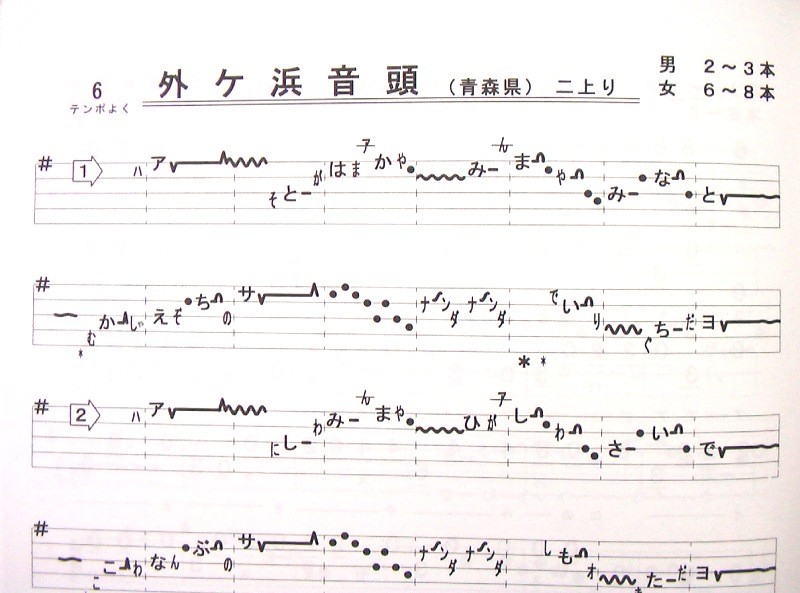 6 テンポよく
外ケ浜音頭 (青森県) 二上り
男 2~3本
女 6~8本
# 1 ハ ア そ と ー が はま かや み ー ん ま や み ー な と
# む か しゃ えぞ ち の サ ナ ン ダ ナ ン ダ で い り ぐ ち ー だ ヨ
# 2 ハ ア に し ー わ み ー ん まや ひが し わ さ ー い で
# こ こ わ なん ぶ の サ ナ ン ダ ナ ン ダ し も オ た ー だ ヨ